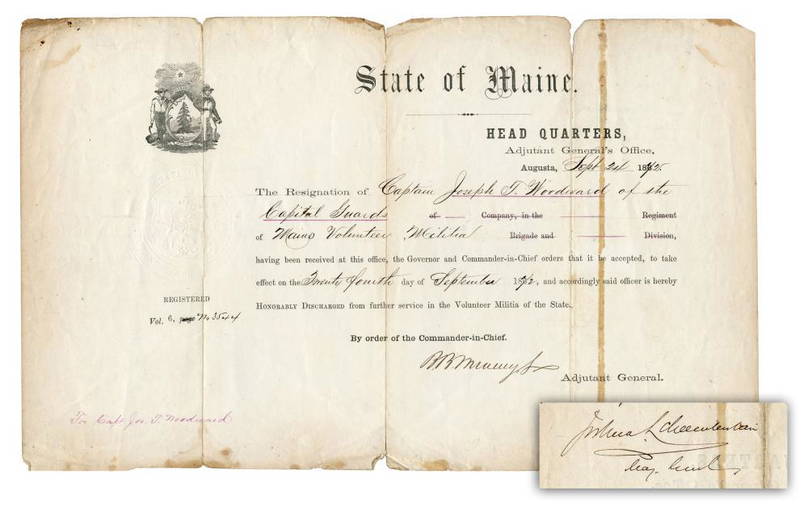 State of Maine.
HEAD QUARTERS,
Adjutant General's Office,
Augusta, Sept 24 1872.
The Resignation of Captain Joseph T. Woodward of the
Capital Guards of Company, in the Regiment
of Maine Volunteer Militia Brigade and Division,
having been received at this office, the Governor and Commander-in-Chief orders that it be accepted, to take
effect on the Twenty fourth day of September 1872, and accordingly said officer is hereby
Honorably Discharged from further service in the Volunteer Militia of the State.
REGISTERED
Vol. 6, No 3544
By order of the Commander-in-Chief.
Adjutant General.
To Capt Jos. T. Woodward
Joshua L Chamberlain
Maj. Genl